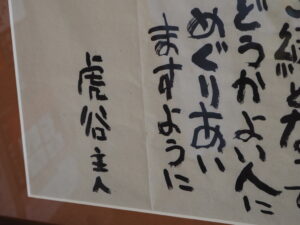 ご縁となって
どうかよい人に
めぐりあい
ますように
虎谷主人